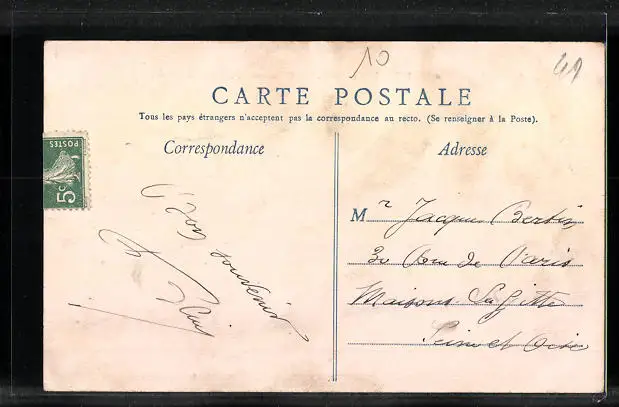 10
49
CARTE POSTALE
Tous les pays étrangers n'acceptent pas la correspondance au recto. (Se renseigner à la Poste).
Correspondance
Adresse
POSTES
5c
Bon souvenir
Mr Jacques Bertin
30 Rue de Paris
Maisons Laffitte
Seine et Oise